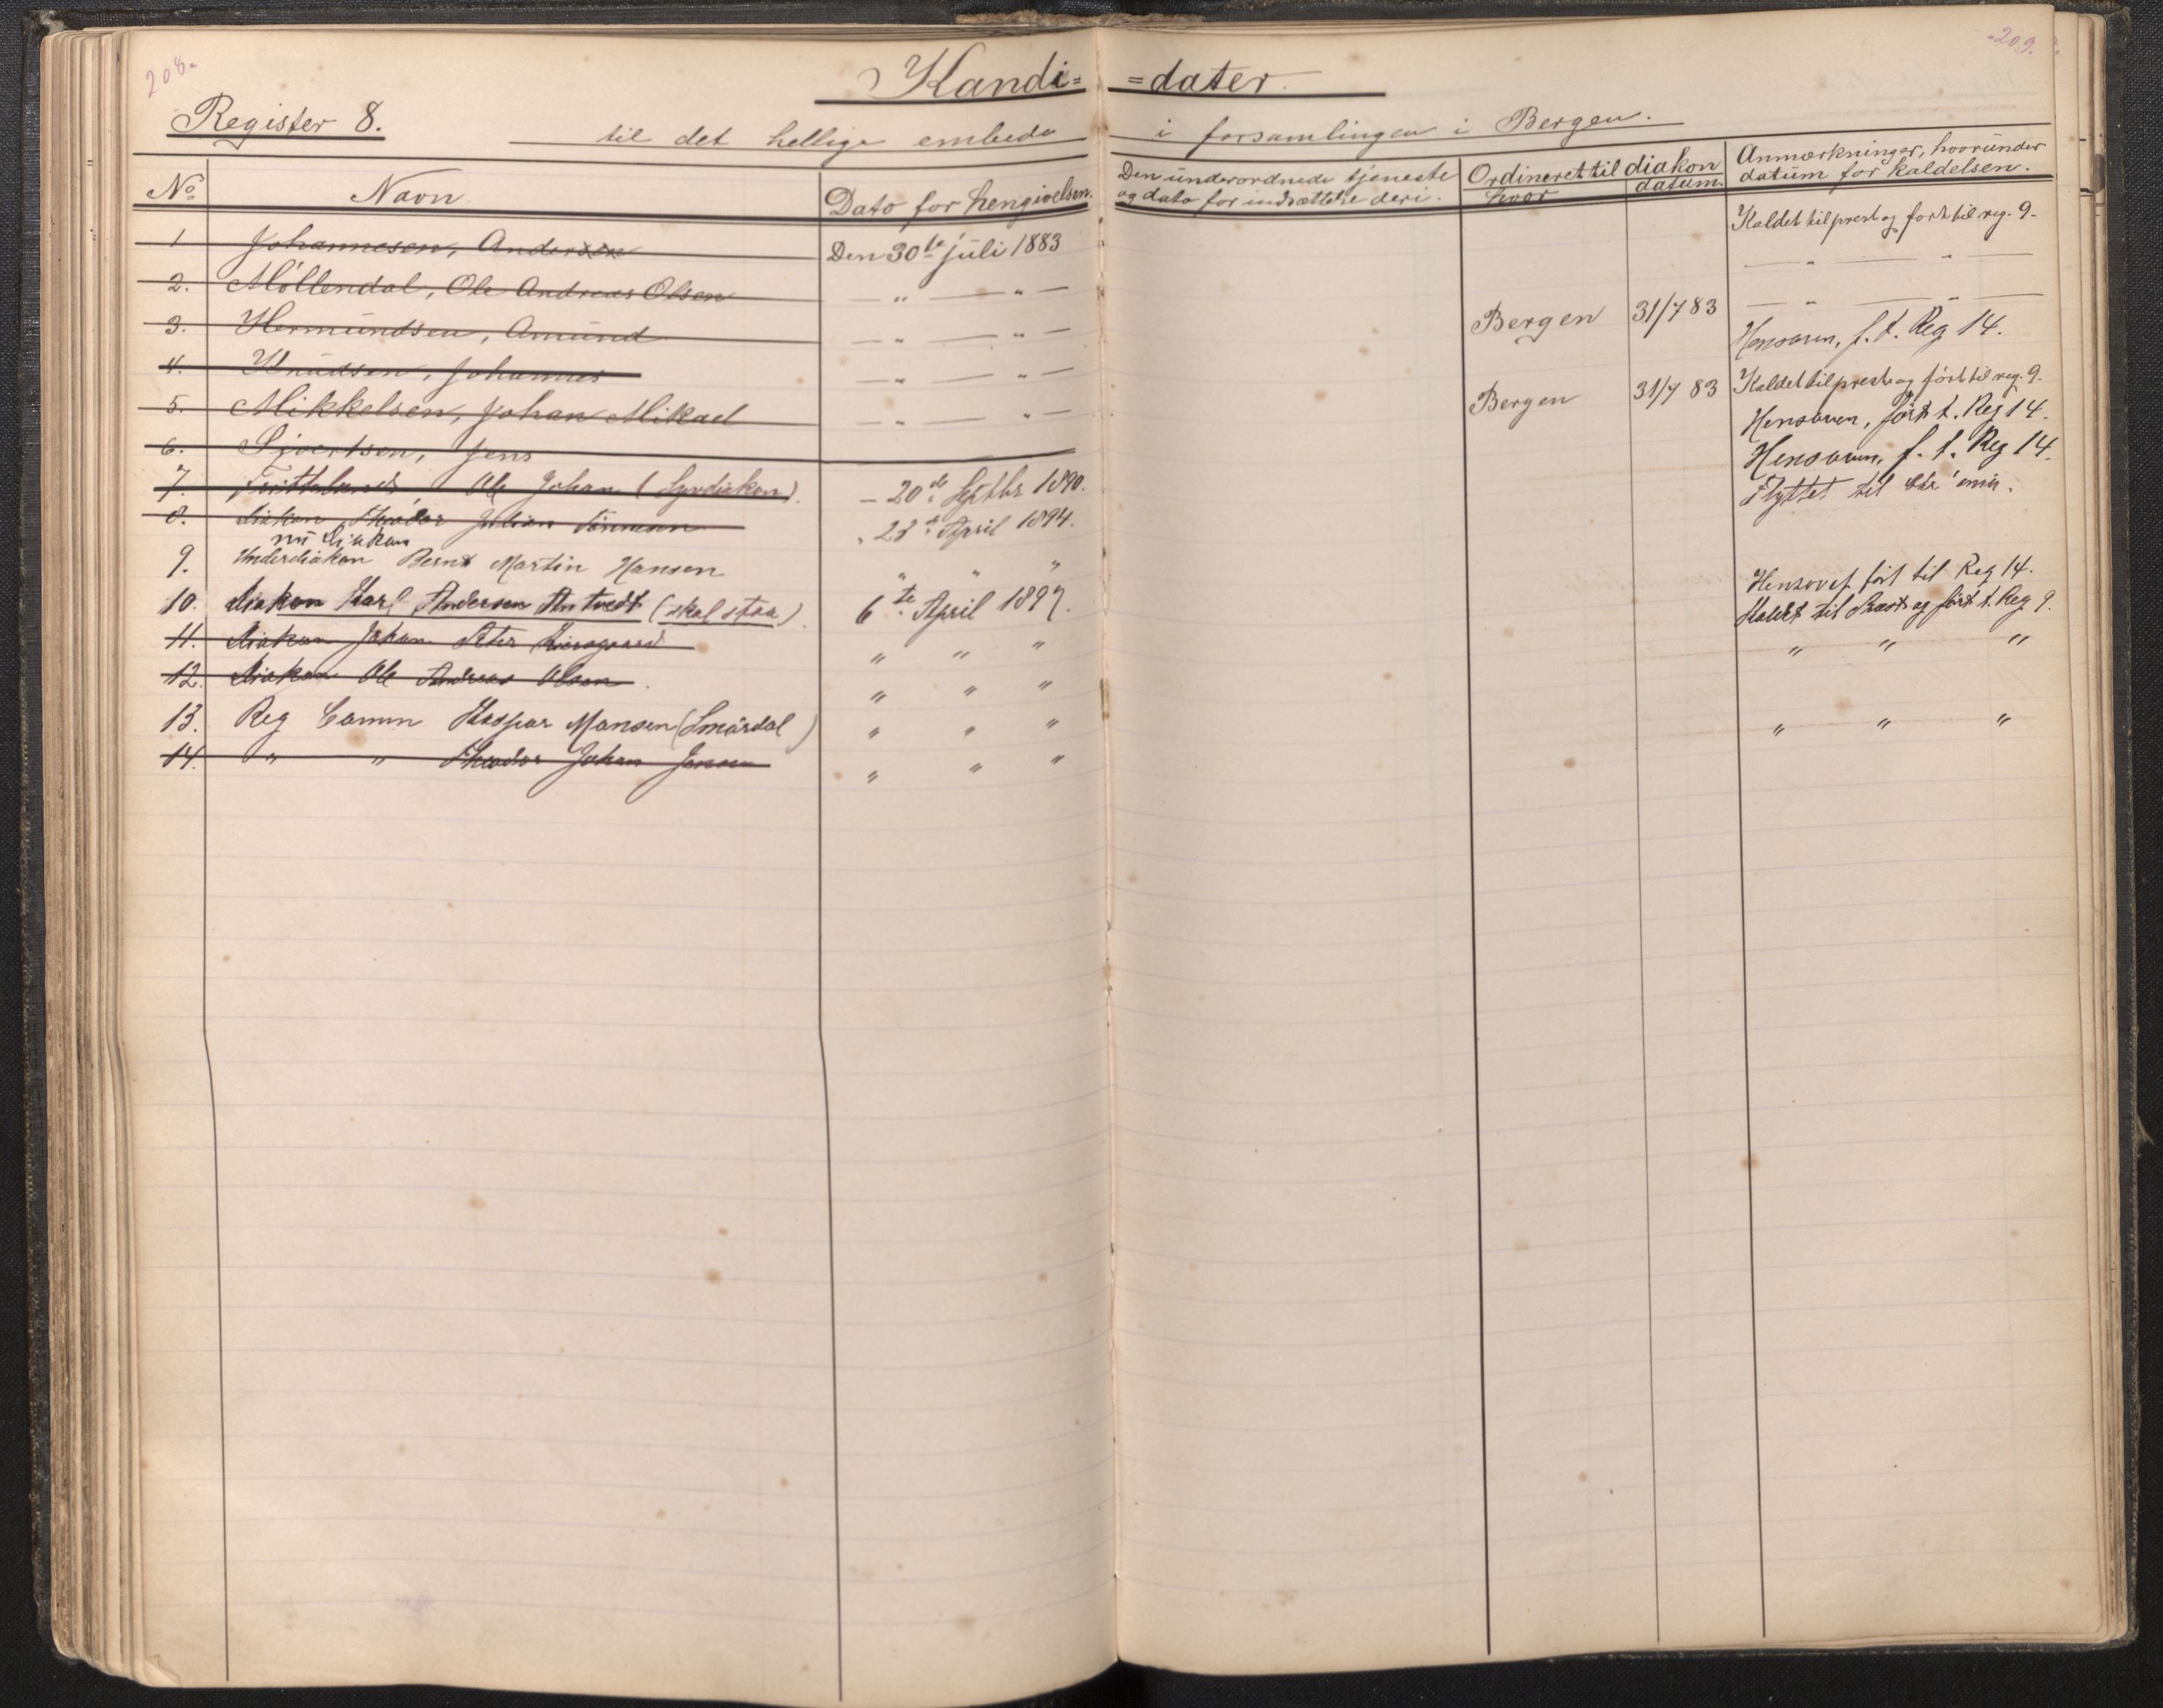 208.
209.
Kandi= =dater.
Register 8. til det hellige embede i forsamlingen i Bergen.
No Navn. Dato for hengivelsen. Den underordnede tjeneste og dato for indsættelse deri. Ordineret til diakon hvor datum. Anmærkninger, hvorunder datum for kaldelsen.
1 Johannesen, Andersen Den 30te juli 1883 Kaldet til prest og ført til reg. 9.
2. Möllendal, Ole Andreas Olsen — " — " — — " — " —
3. Hermundsen, Amund — " — " — Bergen 31/7 83 — " — " —
4. Knudsen, Johannes — " — " — Hensoven, f. t. Reg 14.
5. Mikkelsen, Johan Mikael — " — " — Bergen 31/7 83 Kaldet til prest og ført til reg. 9.
6. Sivertsen, Jens Hensoven, ført t. Reg 14.
7. Ole Johan ( ) – 20de Septbr 1890. Hensoven, f. t. Reg 14.
8. Diakon Theodor Julian " 23de April 1894. Flyttet til
nu Diakon
9. Underdiakon Bernt Martin Hansen " " "
10. Diakon Karl Andersen Antvedt (skal staa) 6te April 1897. Hensovet, ført til Reg 14.
11. Diakon Johan Peter " " " Kaldet til Præst og ført t. Reg 9.
12. Diakon Ole Andreas Olsen. " " " " " "
13. Reg Comm Kaspar Monsen (Smördal) " " "
14. " " Theodor Johan Jensen " " " " " "